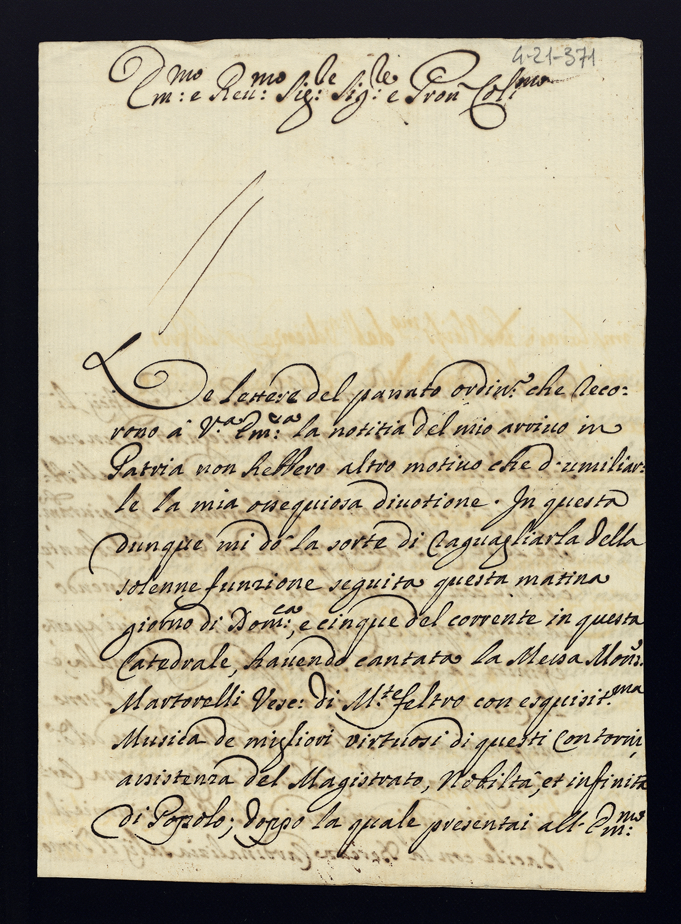 4-21-371
Em:mo e Reu:mo Sig:le Sig:le e Pron Col:mo
Le lettere del passato ordin:o che reco-
rono à V:a Em:za la notitia del mio arriuo in
Patria non hebbero altro motiuo che d'umiliar-
le la mia ossequiosa diuotione. In questa
dunque mi dò la sorte di raguagliarla della
solenne funzione seguita questa matina
giorno di Dom:ca, e cinque del corrente in questa
Catedrale, hauendo cantata la Messa Mons:r
Martorelli Vesc: di M:te feltro con esquisit:ma
Musica de migliori virtuosi di questi Contorni,
assistenza del Magistrato, Nobiltà, et infinità
di Popolo; doppo la quale presentai all' Em:mo